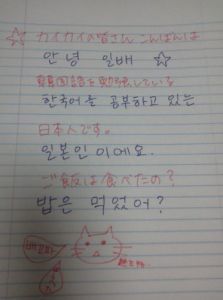 ☆ カイカイの皆さん こんばんは
안녕 일베 ☆
韓国語を勉強している
한국어를 공부하고 있는
日本人です。
일본인 이에요.
ご飯は食べたの?
밥은 먹었어?
배고파